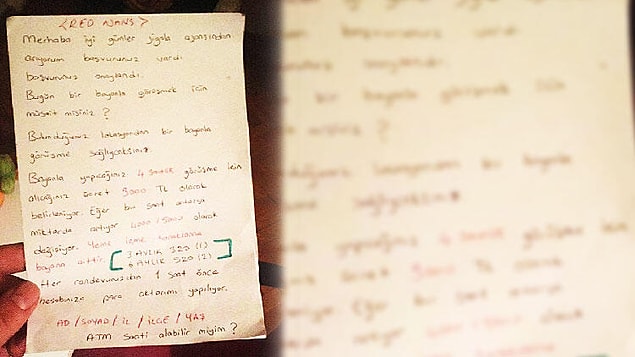 <RED AJANS>
Merhaba iyi günler jigolo ajansından
arıyorum başvurunuz vardı
başvurunuz onaylandı.
Bugün bir bayanla görüşmek için
müsait misiniz ?
Bulunduğunuz lokasyondan bir bayanla
görüşme sağlıycaksınız.
Bayanla yapacağınız 4 saatlik görüşme için
alacağınız ücret 3000 TL olarak
belirleniyor. Eğer bu saat artarsa
miktarda artıyor 4000 / 5000 olarak
değişiyor. Yeme içme konaklama
bayana aittir. [ 3 AYLIK 320 (1)
6 AYLIK 520 (2) ]
Her randevunuzdan 1 saat önce
hesabınıza para aktarımı yapılıyor.
AD / SOYAD / İL / İLÇE / YAŞ
ATM saati alabilir miyim ?